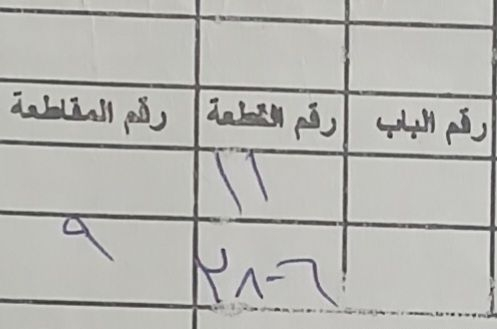 رقم الباب رقم القطعة رقم المقاطعة
١١
٢٨-٦ ٩